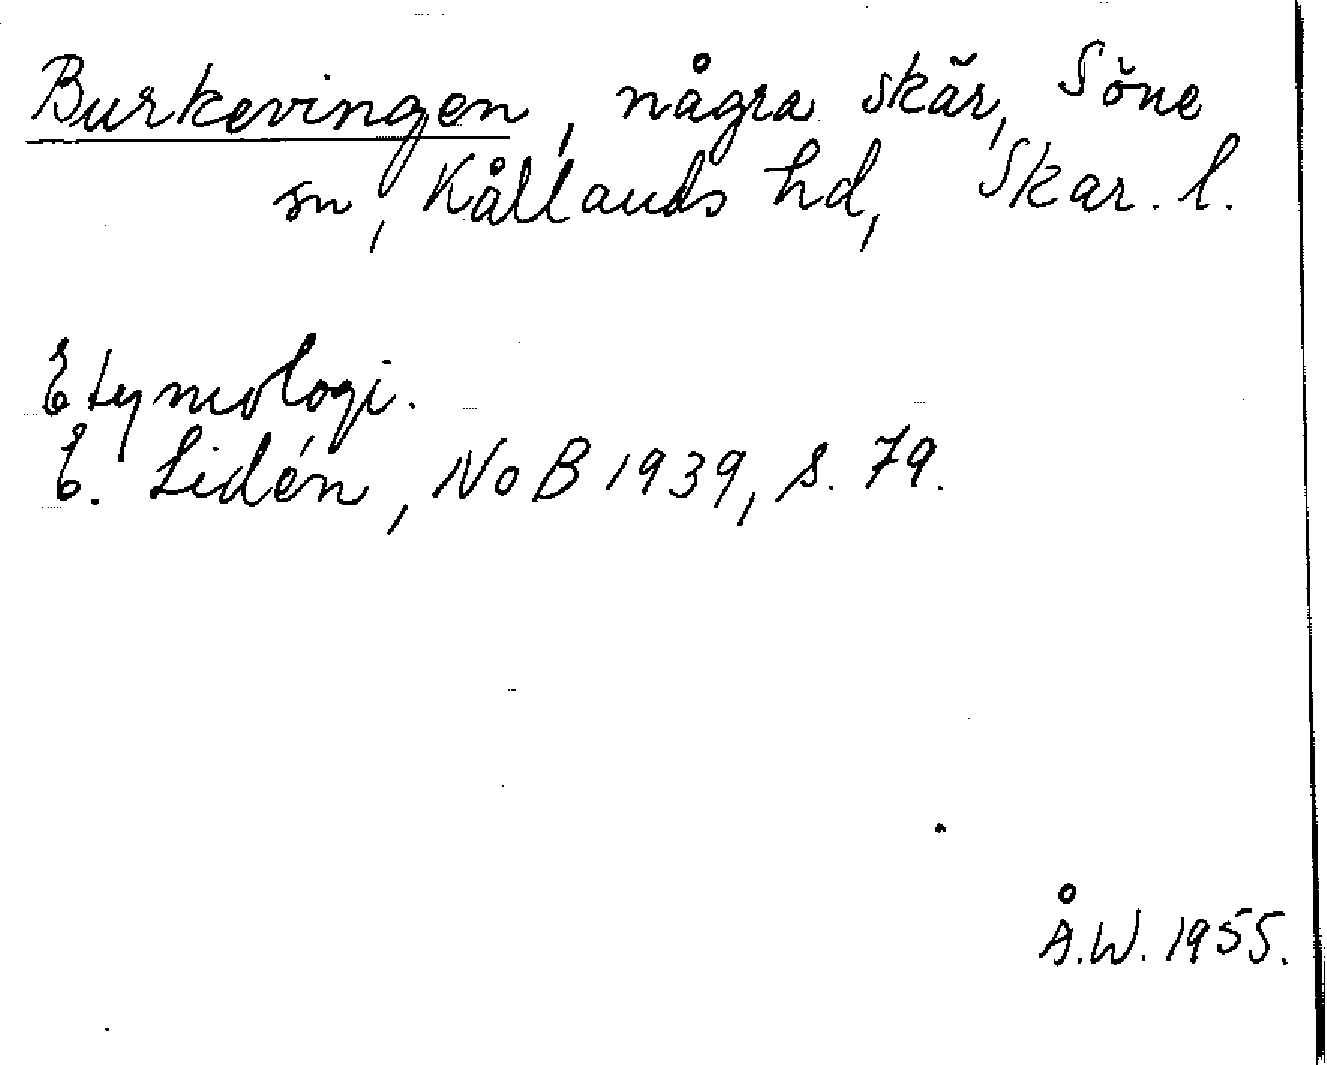 Burkevingen, några skär, Söne
sn, Kållands hd, Skar. l.
Etymologi.
E. Lidén, NoB 1939, s. 79.
Å.W. 1955.